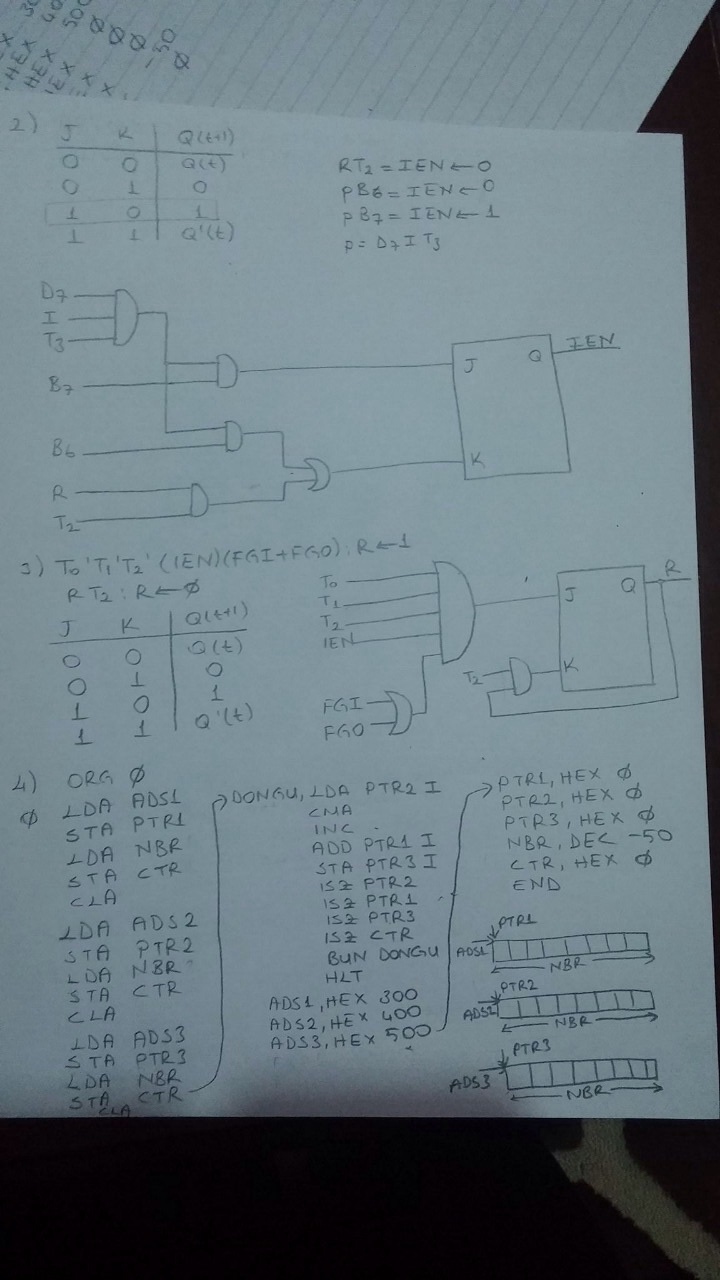 HEX
HEX
HEX
-50
2)
J K Q(t+1)
0 0 Q(t)
0 1 0
1 0 1
1 1 Q'(t)
RT2 = IEN ← 0
pB6 = IEN ← 0
pB7 = IEN ← 1
p = D7 I T3
D7
I
T3
B7
B6
R
T2
J Q IEN
K
3) T0'T1'T2' (IEN)(FGI+FGO): R←1
R T2 : R← Ø
J K Q(t+1)
0 0 Q(t)
0 1 0
1 0 1
1 1 Q'(t)
T0
T1
T2
IEN
FGI
FGO
T2
J Q R
K
4) ORG Ø
Ø LDA ADS1
STA PTR1
LDA NBR
STA CTR
CLA
LDA ADS2
STA PTR2
LDA NBR
STA CTR
CLA
LDA ADS3
STA PTR3
LDA NBR
STA CTR
CLA
DONGU, LDA PTR2 I
CMA
INC
ADD PTR1 I
STA PTR3 I
ISZ PTR2
ISZ PTR1
ISZ PTR3
ISZ CTR
BUN DONGU
HLT
ADS1, HEX 300
ADS2, HEX 400
ADS3, HEX 500
PTR1, HEX Ø
PTR2, HEX Ø
PTR3, HEX Ø
NBR, DEC -50
CTR, HEX Ø
END
PTR1
ADS1
NBR
PTR2
ADS2
NBR
PTR3
ADS3
NBR